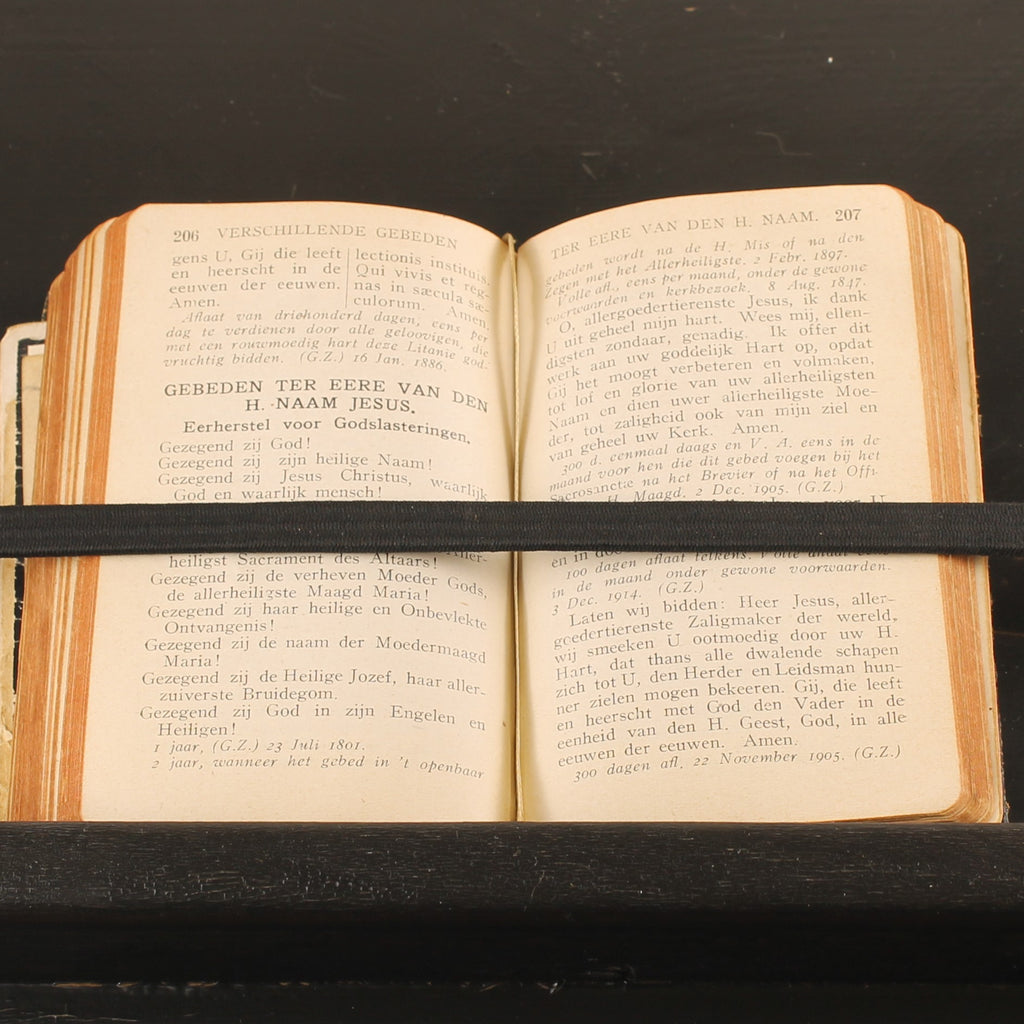 206 VERSCHILLENDE GEBEDEN
gens U, Gij die leeft
en heerscht in de
eeuwen der eeuwen.
Amen.
lectionis instituis.
Qui vivis et reg-
nas in sæcula sæ-
culorum. Amen.
Aflaat van driehonderd dagen, eens per
dag te verdienen door alle geloovigen, die
met een rouwmoedig hart deze Litanie god-
vruchtig bidden. (G.Z.) 16 Jan. 1886.
GEBEDEN TER EERE VAN DEN
H. NAAM JESUS.
Eerherstel voor Godslasteringen.
Gezegend zij God!
Gezegend zij zijn heilige Naam!
Gezegend zij Jesus Christus, waarlijk
God en waarlijk mensch!
heiligst Sacrament des Altaars!
Gezegend zij de verheven Moeder Gods,
de allerheiligste Maagd Maria!
Gezegend zij haar heilige en Onbevlekte
Ontvangenis!
Gezegend zij de naam der Moedermaagd
Maria!
Gezegend zij de Heilige Jozef, haar aller-
zuiverste Bruidegom.
Gezegend zij God in zijn Engelen en
Heiligen!
1 jaar, (G.Z.) 23 Juli 1801.
2 jaar, wanneer het gebed in 't openbaar
TER EERE VAN DEN H. NAAM. 207
gebeden wordt na de H. Mis of na den
Zegen met het Allerheiligste. 2 Febr. 1897.
Volle afl., eens per maand, onder de gewone
voorwaarden en kerkbezoek. 8 Aug. 1847.
O, allergoedertierenste Jesus, ik dank
U uit geheel mijn hart. Wees mij, ellen-
digsten zondaar, genadig. Ik offer dit
werk aan uw goddelijk Hart op, opdat
Gij het moogt verbeteren en volmaken,
tot lof en glorie van uw allerheiligsten
Naam en dien uwer allerheiligste Moe-
der, tot zaligheid ook van mijn ziel en
van geheel uw Kerk. Amen.
300 d. eenmaal daags en V. A. eens in de
maand voor hen die dit gebed voegen bij het
Sacrosanctæ na het Brevier of na het Offi.
H. Maagd. 2 Dec. 1905. (G.Z.)
en in
100 dagen aflaat telkens. Volle aflaat
in de maand onder gewone voorwaarden.
3 Dec. 1914. (G.Z.)
Laten wij bidden: Heer Jesus, aller-
goedertierenste Zaligmaker der wereld,
wij smeeken U ootmoedig door uw H.
Hart, dat thans alle dwalende schapen
zich tot U, den Herder en Leidsman hun-
ner zielen mogen bekeeren. Gij, die leeft
en heerscht met God den Vader in de
eenheid van den H. Geest, God, in alle
eeuwen der eeuwen. Amen.
300 dagen afl. 22 November 1905. (G.Z.)